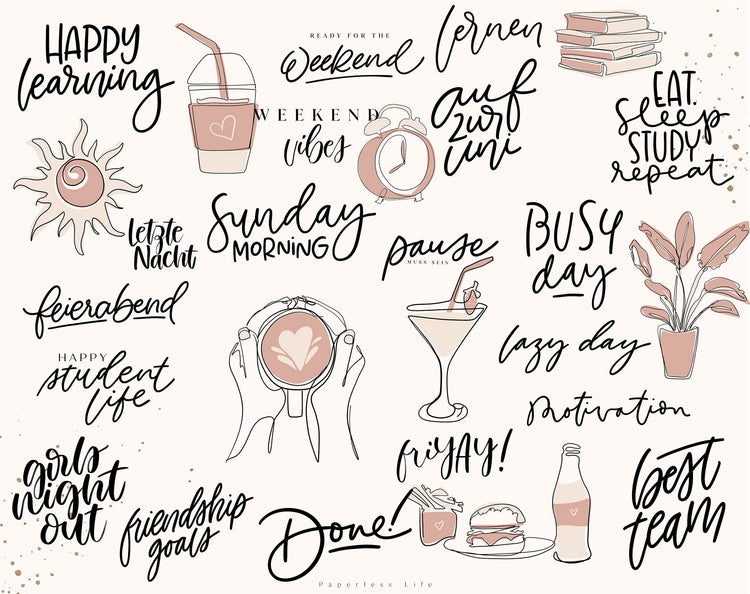 HAPPY
learning
READY FOR THE
Weekend
lernen
WEEKEND
vibes
auf
zur
uni
EAT.
sleep
STUDY
repeat
letzte
Nacht
Sunday
MORNING
pause
MUSS SEIN
BUSY
day
feierabend
HAPPY
student
life
lazy day
Motivation
girls
night
out
friendship
goals
Done!
friYAY!
best
team
Paperless Life